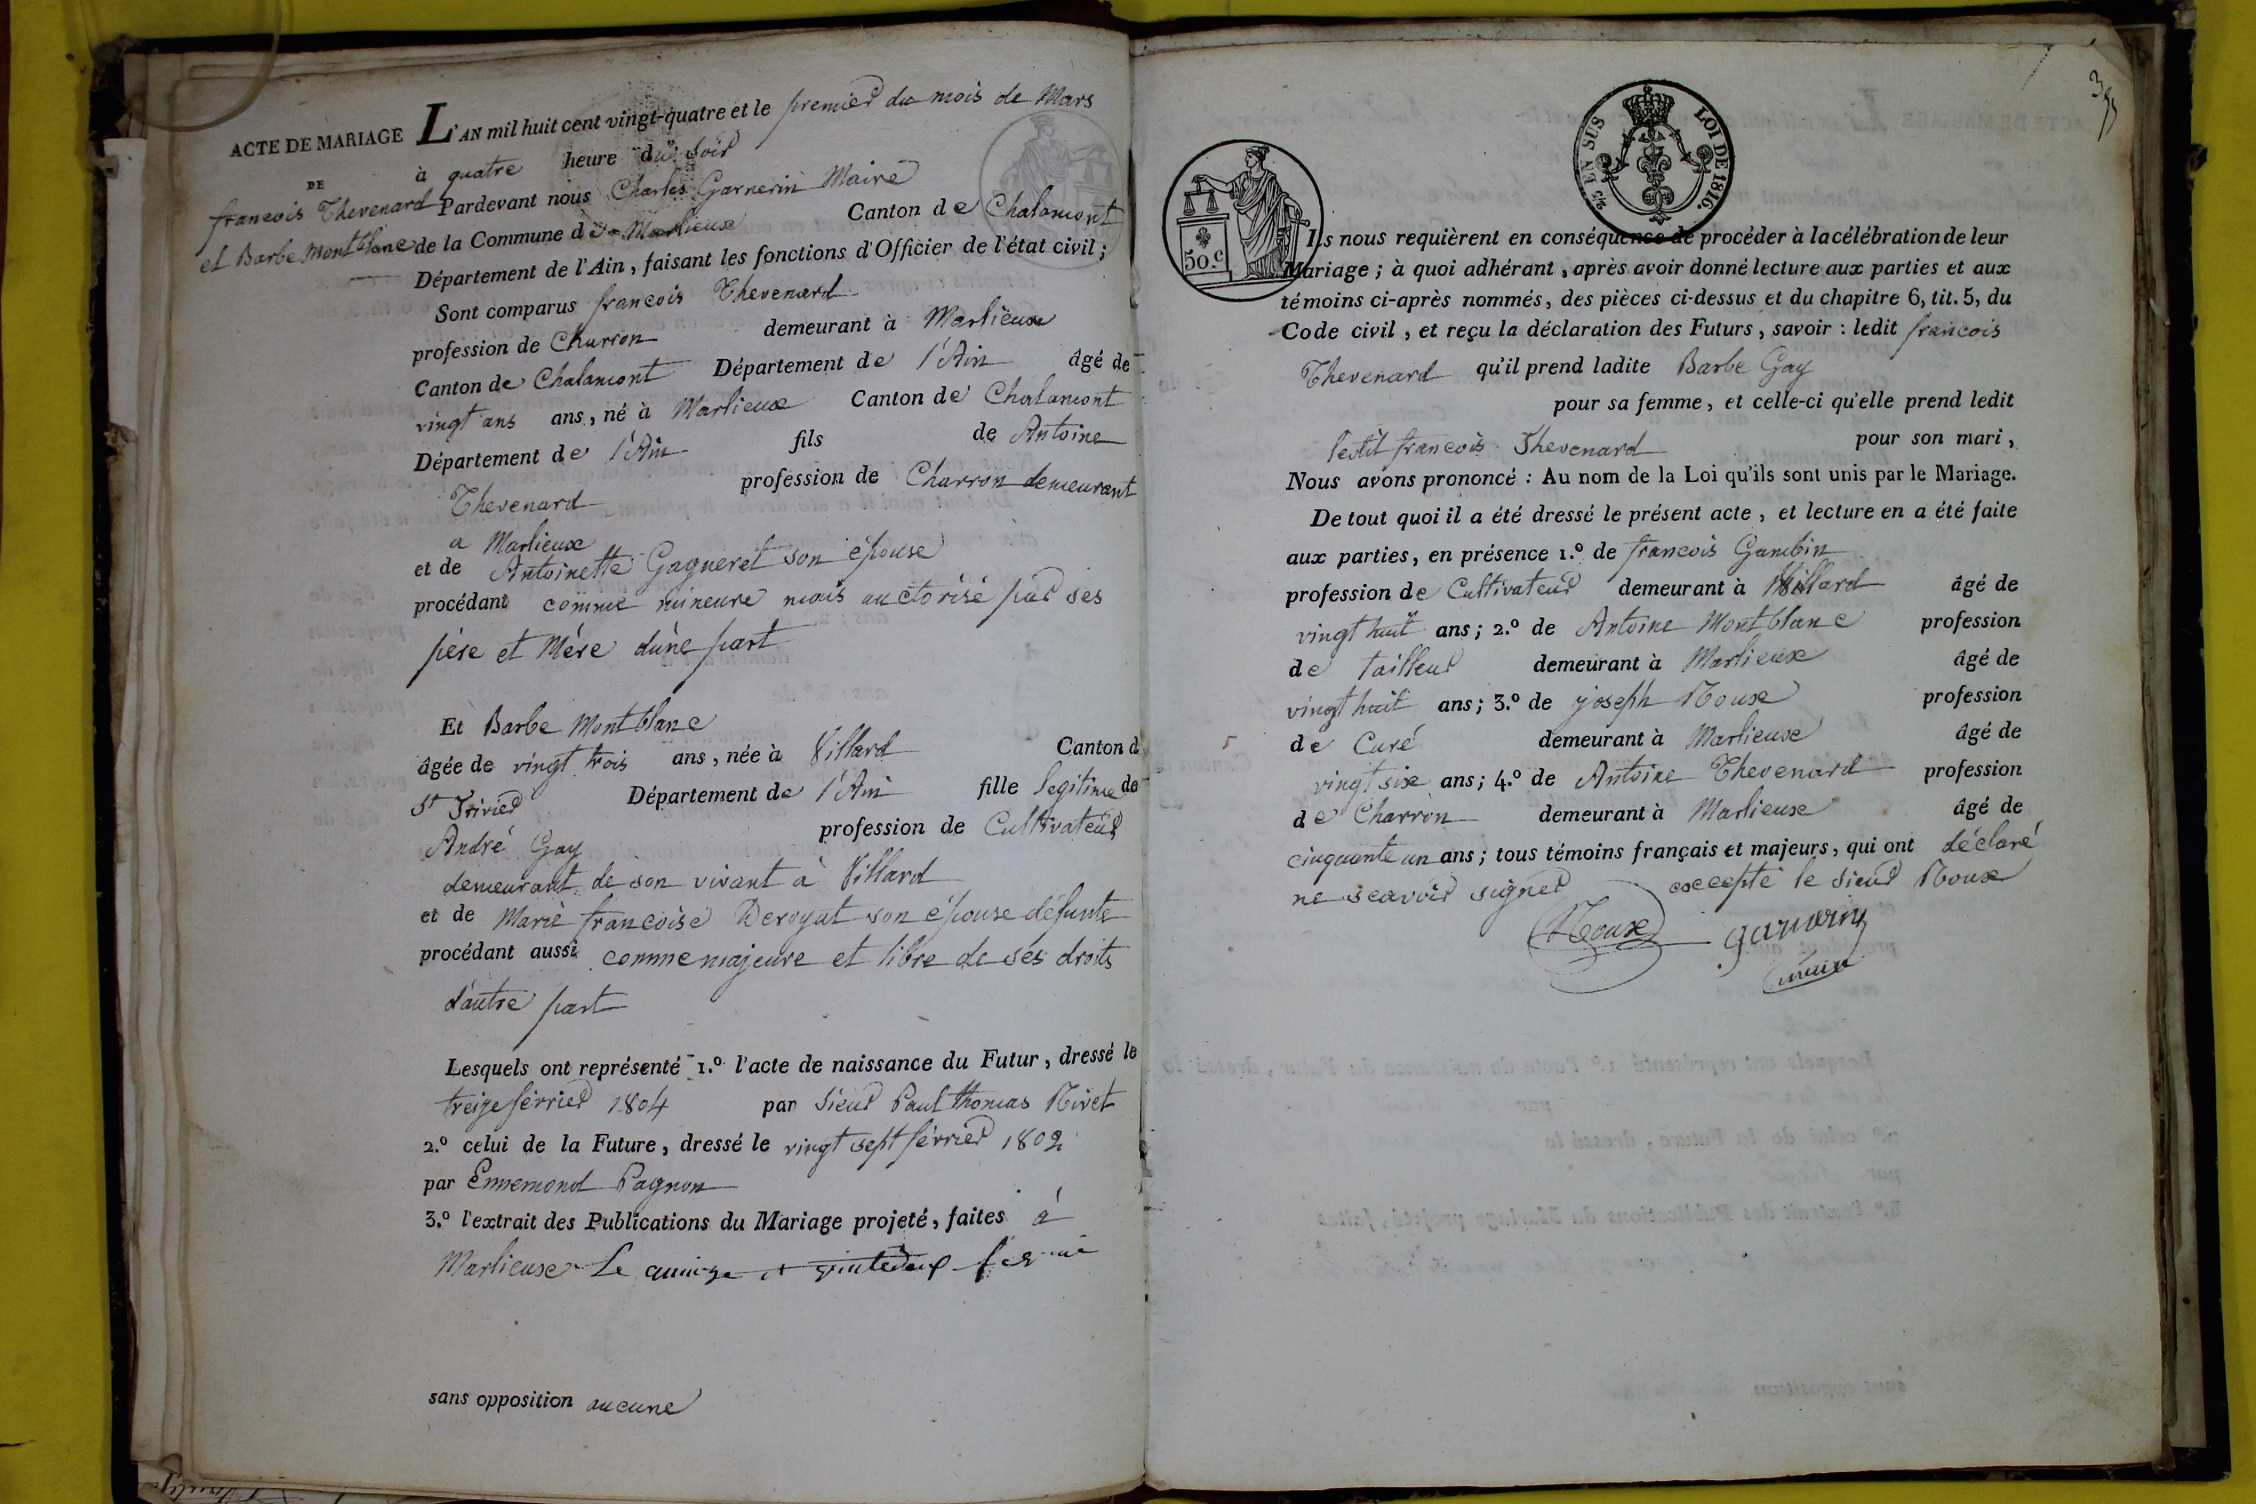 ACTE DE MARIAGE
DE
francois Thevenard
et Barbe Montblanc
L'AN mil huit cent vingt-quatre et le premier du mois de Mars
à quatre heure du soir
Pardevant nous Charles Garnerin Maire
de la Commune de Marlieux Canton de Chalamont
Département de l'Ain, faisant les fonctions d'Officier de l'état civil;
Sont comparus francois Thevenard
profession de Charron demeurant à Marlieux
Canton de Chalamont Département de l'Ain âgé de
vingt ans ans, né à Marlieux Canton de Chalamont
Département de l'Ain fils de Antoine
Thevenard profession de Charron demeurant
a Marlieux
et de Antoinette Gagneret son épouse
procédant comme mineure mais auctorisé par ses
père et Mére d'une part
Et Barbe Montblanc
âgée de vingt trois ans, née à Villard Canton d
St Trivier Département de l'Ain fille legitime de
André Gay profession de Cultivateur
demeurant de son vivant à Villard
et de Marie francoise Deroyat son épouse défunte
procédant aussi comme majeure et libre de ses droits
d'autre part
Lesquels ont représenté 1.º l'acte de naissance du Futur, dressé le
treize février 1804 par Sieur Paul thomas Rivet
2.º celui de la Future, dressé le vingt sept février 1802
par Ennemond Pagnon
3.º l'extrait des Publications du Mariage projeté, faites à
Marlieux Le quinze et
sans opposition aucune
395
EN SUS
LOI DE 1816.
50.c
Ils nous requièrent en conséquence de procéder à la célébration de leur
Mariage; à quoi adhérant, après avoir donné lecture aux parties et aux
témoins ci-après nommés, des pièces ci-dessus et du chapitre 6, tit. 5, du
Code civil, et reçu la déclaration des Futurs, savoir : ledit francois
Thevenard qu'il prend ladite Barbe Gay
pour sa femme, et celle-ci qu'elle prend ledit
ledit francois Thevenard pour son mari,
Nous avons prononcé : Au nom de la Loi qu'ils sont unis par le Mariage.
De tout quoi il a été dressé le présent acte, et lecture en a été faite
aux parties, en présence 1.º de francois Gambin
profession de Cultivateur demeurant à Villard âgé de
vingt huit ans; 2.º de Antoine Montblanc profession
de tailleur demeurant à Marlieux âgé de
vingt huit ans; 3.º de joseph Roux profession
de Curé demeurant à Marlieux âgé de
vingt six ans; 4.º de Antoine Thevenard profession
de Charron demeurant à Marlieux âgé de
cinquante un ans; tous témoins français et majeurs, qui ont déclaré
ne scavoir signer excepté le sieur Roux
Roux garnerin
maire